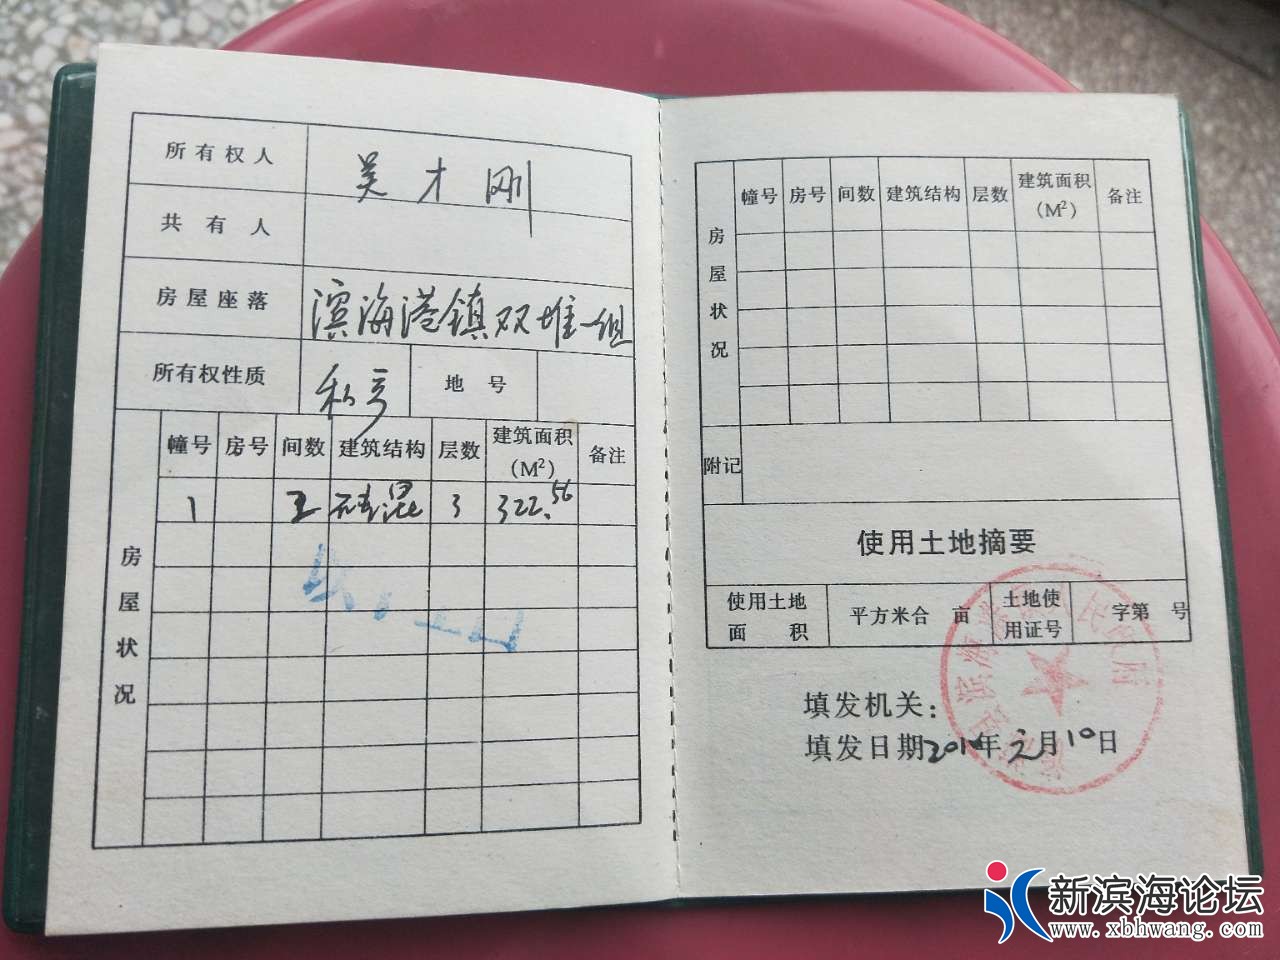 所有权人 吴才刚
共有人
房屋座落 滨海港镇双堆一组
所有权性质 私产 地号
房屋状况
幢号 房号 间数 建筑结构 层数 建筑面积(M²) 备注
1 砖混 3 322.56
房屋状况
幢号 房号 间数 建筑结构 层数 建筑面积(M²) 备注
附记
使用土地摘要
使用土地面积 平方米合 亩 土地使用证号 字第 号
填发机关:
填发日期 年元月10日
新滨海论坛
www.xbhwang.com